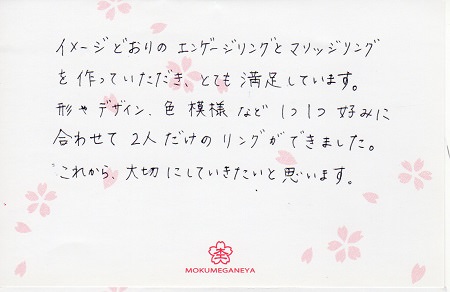 イメージどおりの エンゲージリングと マリッジリング
を 作っていただき、とても 満足しています。
形や デザイン、色 模様 など 1つ1つ 好みに
合わせて 2人 だけの リングが できました。
これから、大切 に していきたいと 思います。
MOKUMEGANEYA